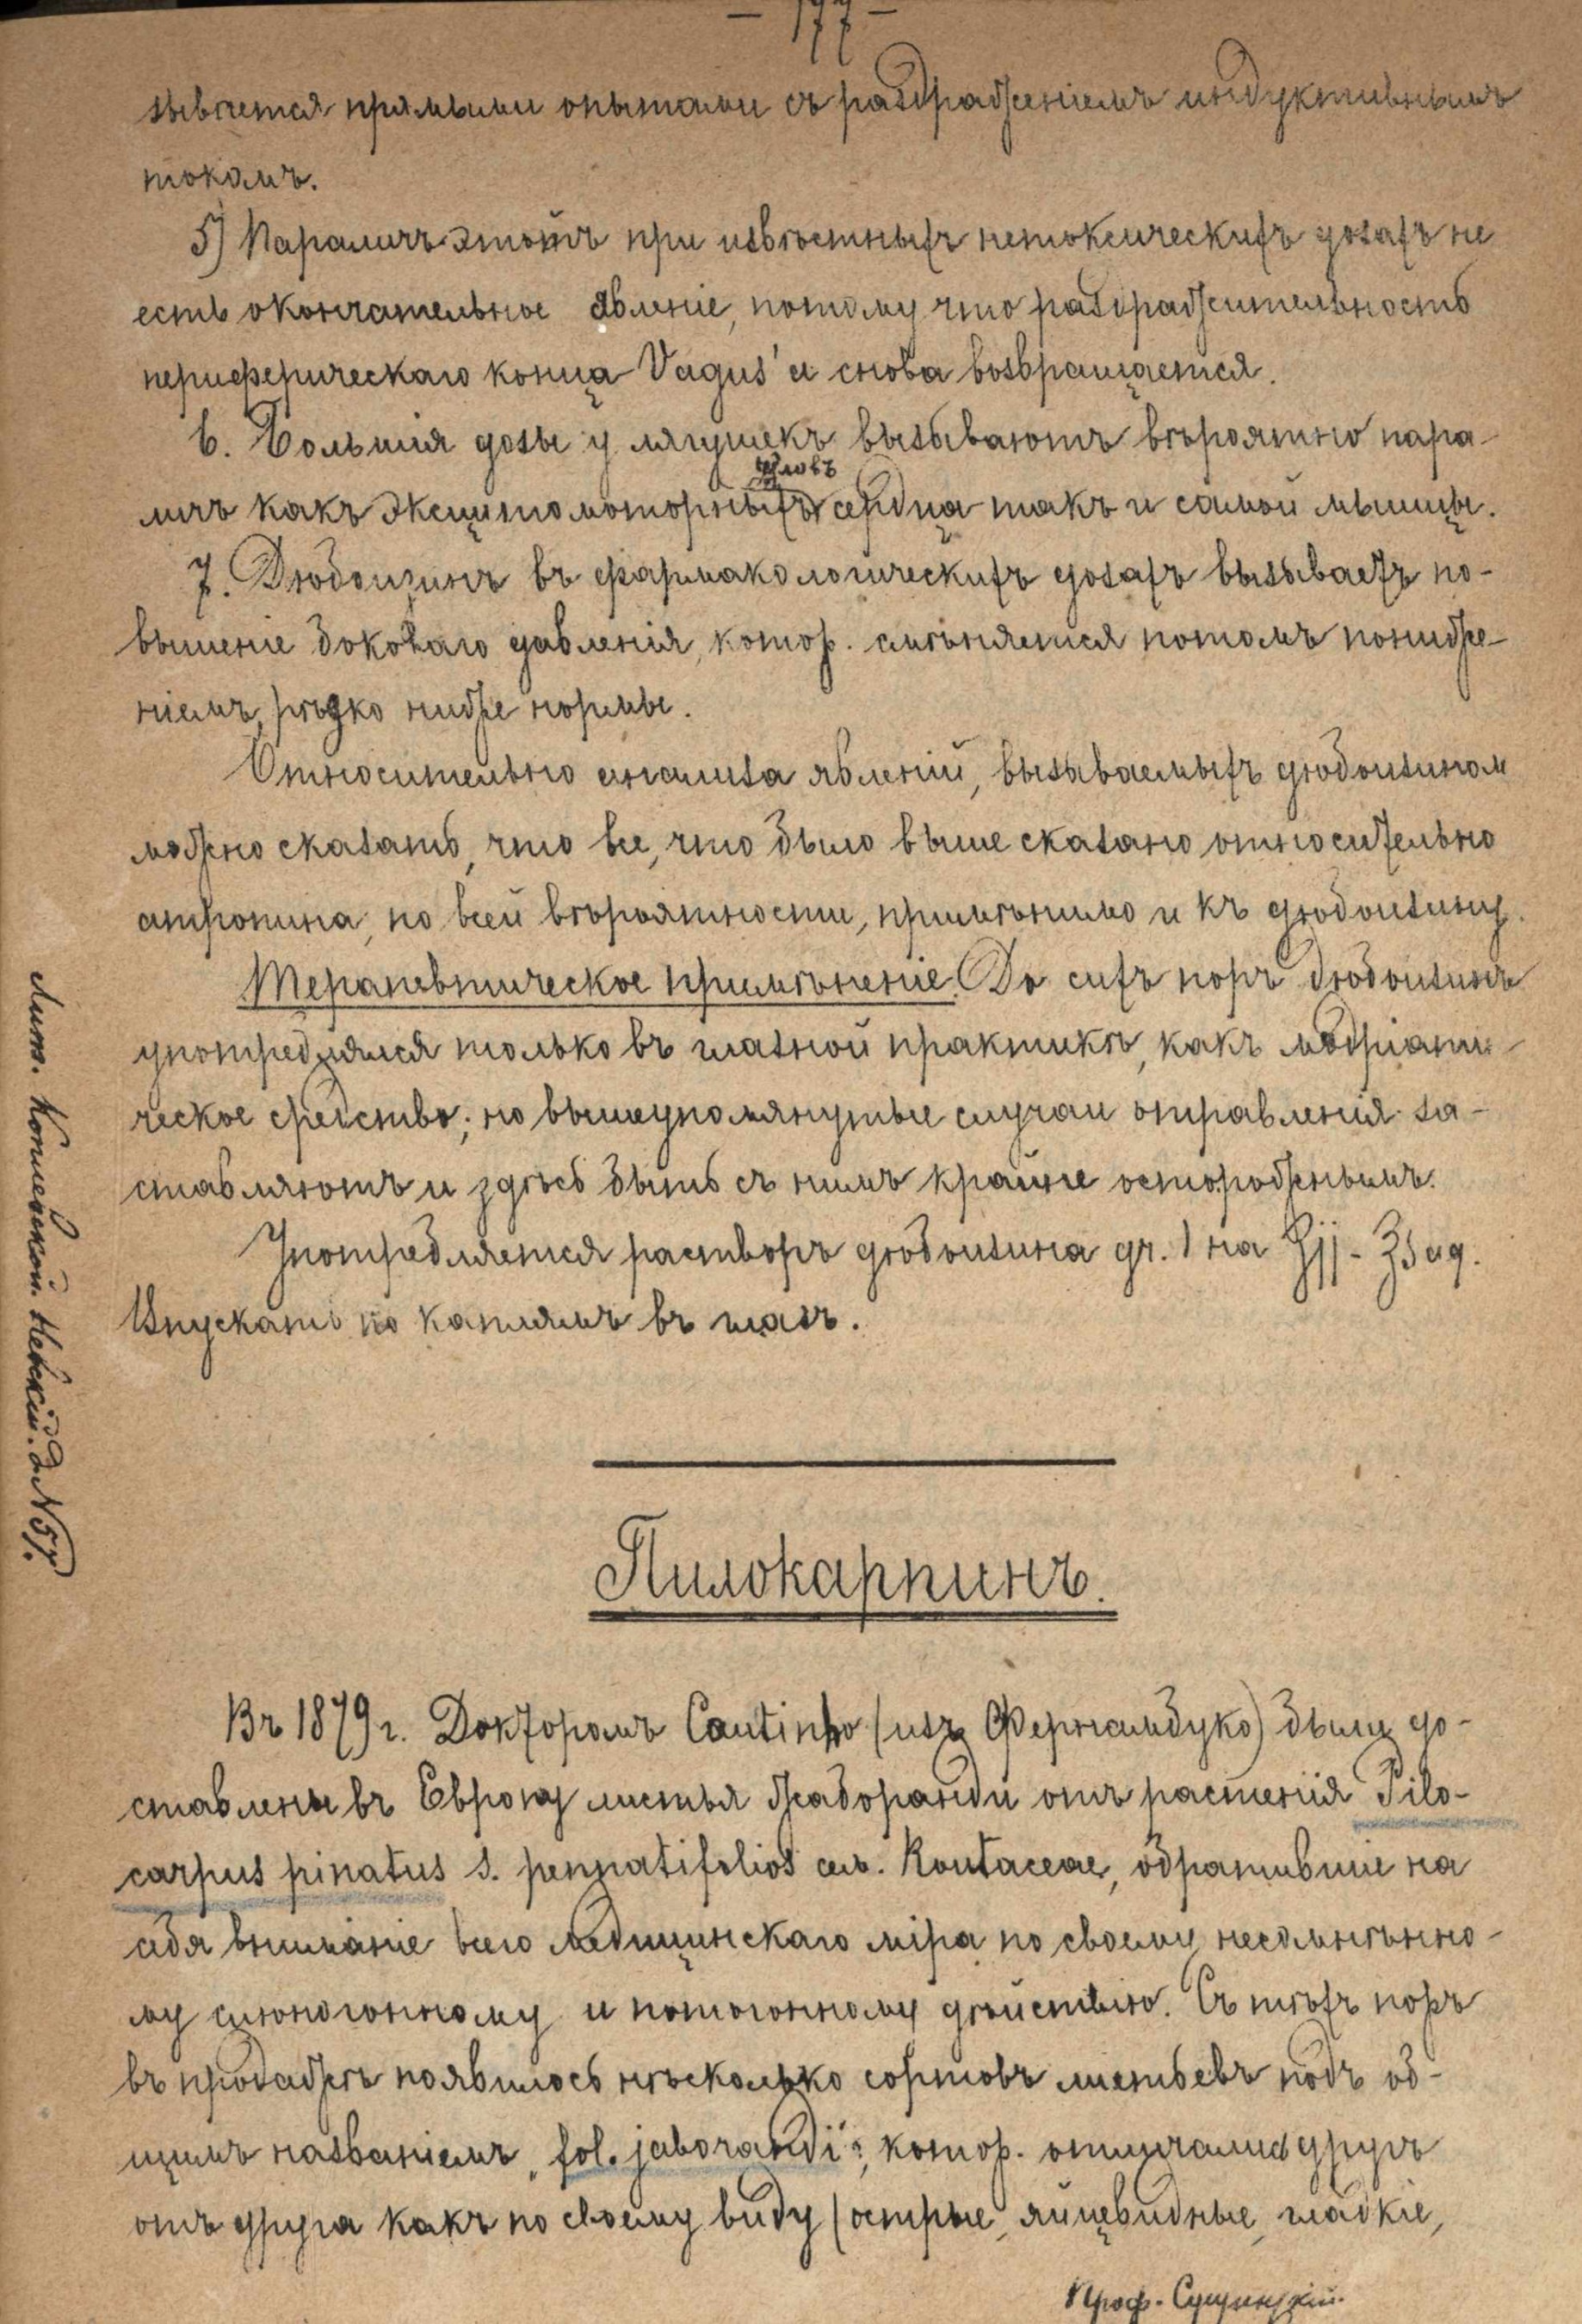 – 177 –
зывается прямыми опытами съ раздраженіемъ индуктивнымъ
токомъ.
5) Параличъ этотъ при извѣстныхъ нетоксическихъ дозахъ не
есть окончательное явленіе, потому что раздражительность
периферическаго конца Vagus'а снова возвращается.
6. Большія дозы у лягушекъ вызываютъ вѣроятно пара-
узловъ
личъ какъ эксцитомоторныхъ сердца такъ и самой мышцы.
7. Дюбоизинъ въ фармакологическихъ дозахъ вызываетъ по-
вышеніе боковаго давленія, котор. смѣняется потомъ пониже-
ніемъ, рѣдко ниже нормы.
Относительно анализа явленій, вызываемыхъ дюбоизином
можно сказать, что все, что было выше сказано относительно
атропина, по всей вѣроятности, примѣнимо и къ дюбоизину.
Терапевтическое примѣненіе. До сихъ поръ дюбоизинъ
употреблялся только въ глазной практикѣ, какъ мидріати-
ческое средство; но вышеупомянутые случаи отравленія за-
ставляютъ и здѣсь быть съ нимъ крайне осторожнымъ.
Употребляется растворъ дюбоизина gr. 1 на ʒjj - ℥ß aq.
Впускать по каплямъ въ глазъ.
Пилокарпинъ.
Въ 1879 г. Докторомъ Coutinho (изъ Фернамбуко) были до-
ставлены въ Европу листья жаборанди отъ растенія Pilo-
carpus pinatus s. pennatifolios сем. Routaceae, обратившіе на
себя вниманіе всего медицинскаго міра по своему несомнѣнно-
му слюногонному и потогонному дѣйствію. Съ тѣхъ поръ
въ продажѣ появилось нѣсколько сортовъ листьевъ подъ об-
щимъ названіемъ „fol. jaborandi“, котор. отличались другъ
отъ друга какъ по своему виду (острые, яйцевидные, гладкіе,
Проф. Сущинскій.
Лит. Невскій. д. № 57.